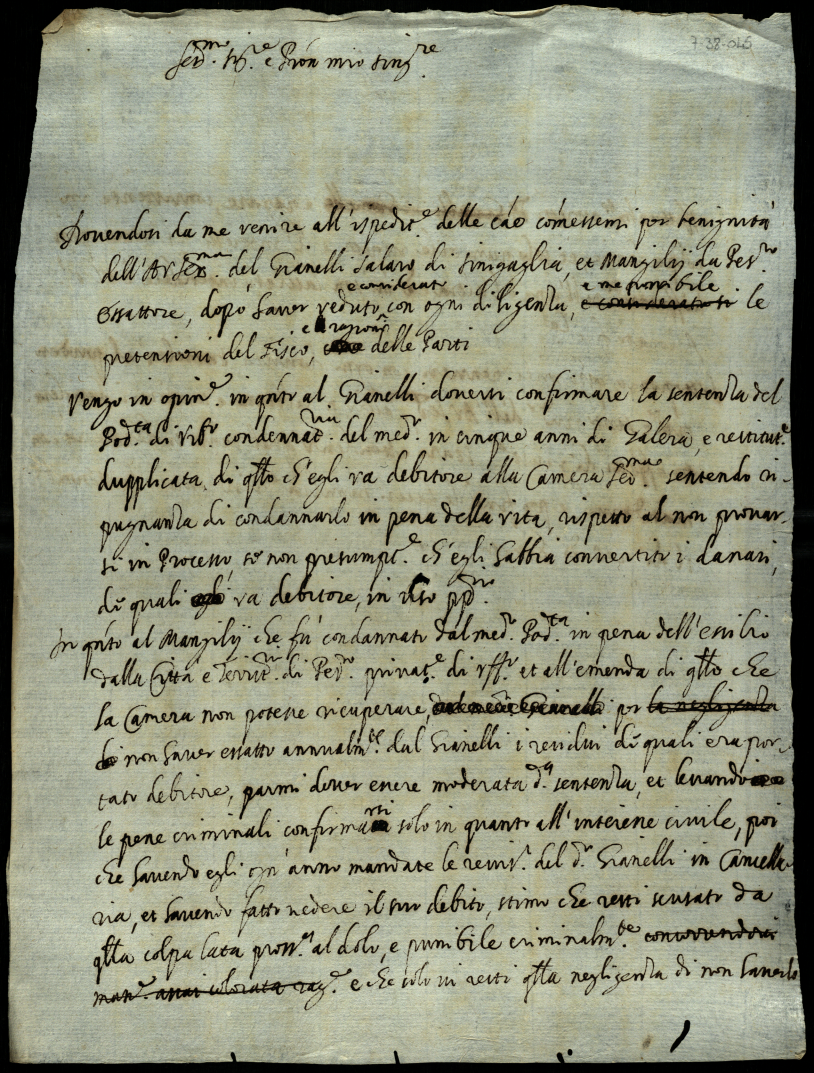 7-38-016
Ser.mo Sig.re e Pròn mio sing.re
Dovendosi da me venire all'ispedit.e delle cáe cómessemi per benignità
dell'A.V. Ser.ma del Gianelli salaro di Sinigaglia, et Mangilij da Pes.ro
e considerato e me possibile
essattore, dopò haver veduto, con ogni diligenza, e considerato le
e ragioni
pretensioni del Fisco, delle Parti
Vengo in opin.e in qnto al Gianelli doversi confirmare la sentenza del
Pod.tà di condennat.ria del med.o in cinque anni di Galera, e restitut.e
dupplicata di qllo ch'egli va debitore alla Camera Ser.ma sentendo ri-
pugnanza di condannarlo in pena della vita, rispetto al non provar-
si in Processo, se non presumpt.e ch'egli habbia convertito i danari,
de quali egli va debitore, in uso pp.rio
In qnto al Mangilij che fù condannato dal med.o Pod.tà in pena dell'essilio
dalla Città e Territ.rio di Pes.ro privat.e di uff.o et all'emenda di qllo che
la Camera non potesse ricuperare, dal med.o Gianelli per la negligenza
di non haver essatto annualm.te dal Gianelli i residui de quali era por-
tato debitore, parmi dover essere moderata d.a sentenza, et levando
le pene criminali confirmarsi solo in quanto all'interesse civile, poi
che havendo egli ogn'anno mandate le revis.i del d.o Gianelli in Cancelle-
ria, et havendo fatto vedere il suo debito, stimo che resti scusato da
qlla colpa lata pross.a al dolo, e punibile criminalm.te concorrendovi
mass.e assai colorata rag.e e che solo vi resti qlla negligenza di non haverlo